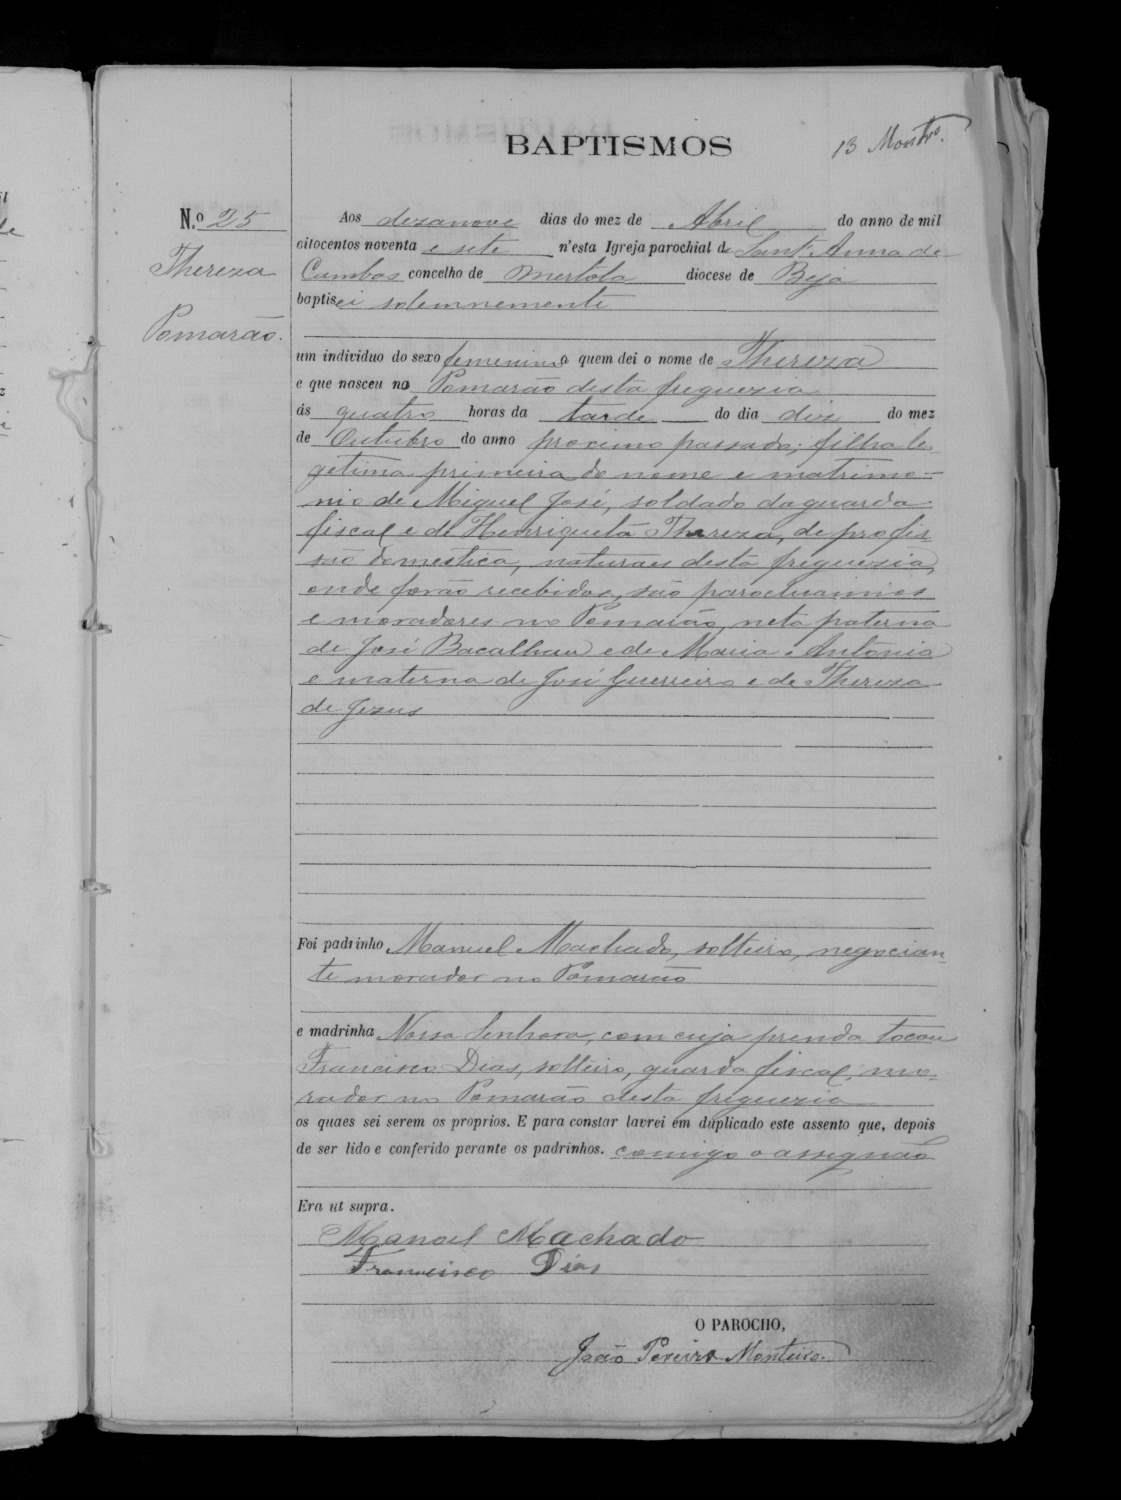 BAPTISMOS
13 Montro.
N.º 25
Thereza
Pomarão.
Aos dezanove dias do mez de Abril do anno de mil
oitocentos noventa e sete n'esta Igreja parochial de Sant'Anna de
Cambas concelho de Mertola diocese de Beja
baptisei solemnemente
um individuo do sexo femenino a quem dei o nome de Thereza
e que nasceu no Pomarão desta freguezia
ás quatro horas da tarde do dia dez do mez
de Outubro do anno proximo passado; filha le
getima primeira do nome e matrimo-
nio de Miguel José, soldado da guarda
fiscal e de Henriqueta Thereza, de profis
são domestica, naturaes desta freguezia,
onde forão recebidos, são parochianos
e moradores no Pomarão, neta paterna
de José Bacalhau e de Maria Antonia
e materna de José Guerreiro e de Thereza
de Jezus
Foi padrinho Manuel Machado, solteiro, negocian-
te morador no Pomarão
e madrinha Nossa Senhora, com cuja prenda tocou
Francisco Dias, solteiro, guarda fiscal, mo-
rador no Pomarão desta freguezia
os quaes sei serem os proprios. E para constar lavrei em duplicado este assento que, depois
de ser lido e conferido perante os padrinhos. comigo o assignão
Era ut supra.
Manoel Machado
Francisco Dias
O PAROCHO,
João Pereira Monteiro.